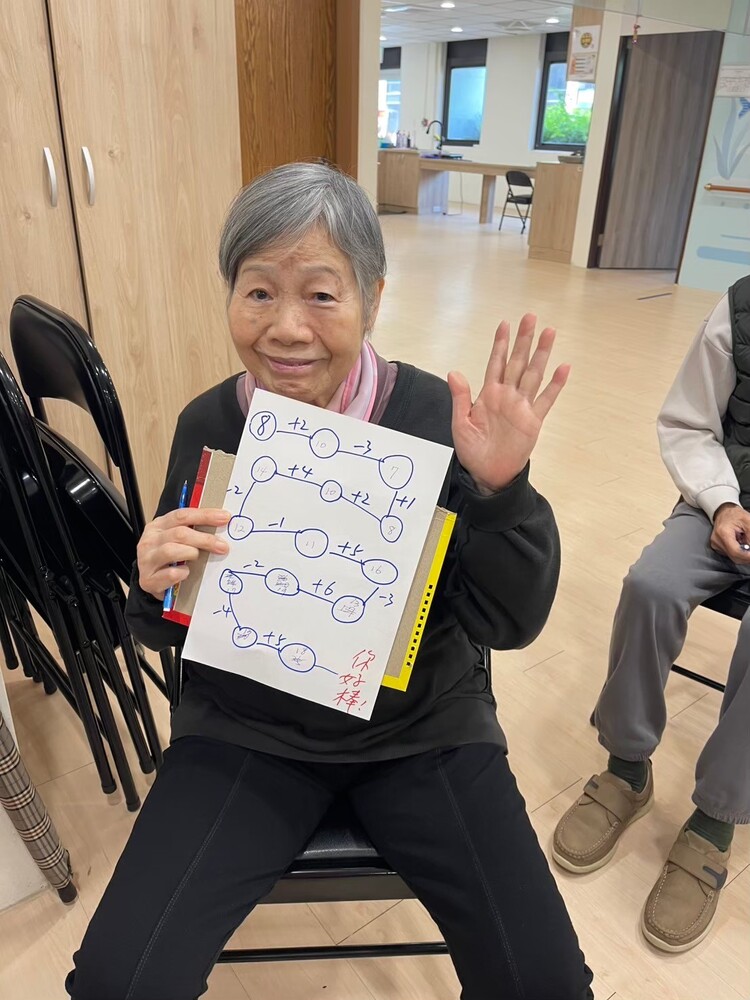 8 +2 10 -3 7
+1
14 +4 10 +2 8
-2
12 -1 11 +5 16
-2 +6 -3
-4 +5
你
好
棒!